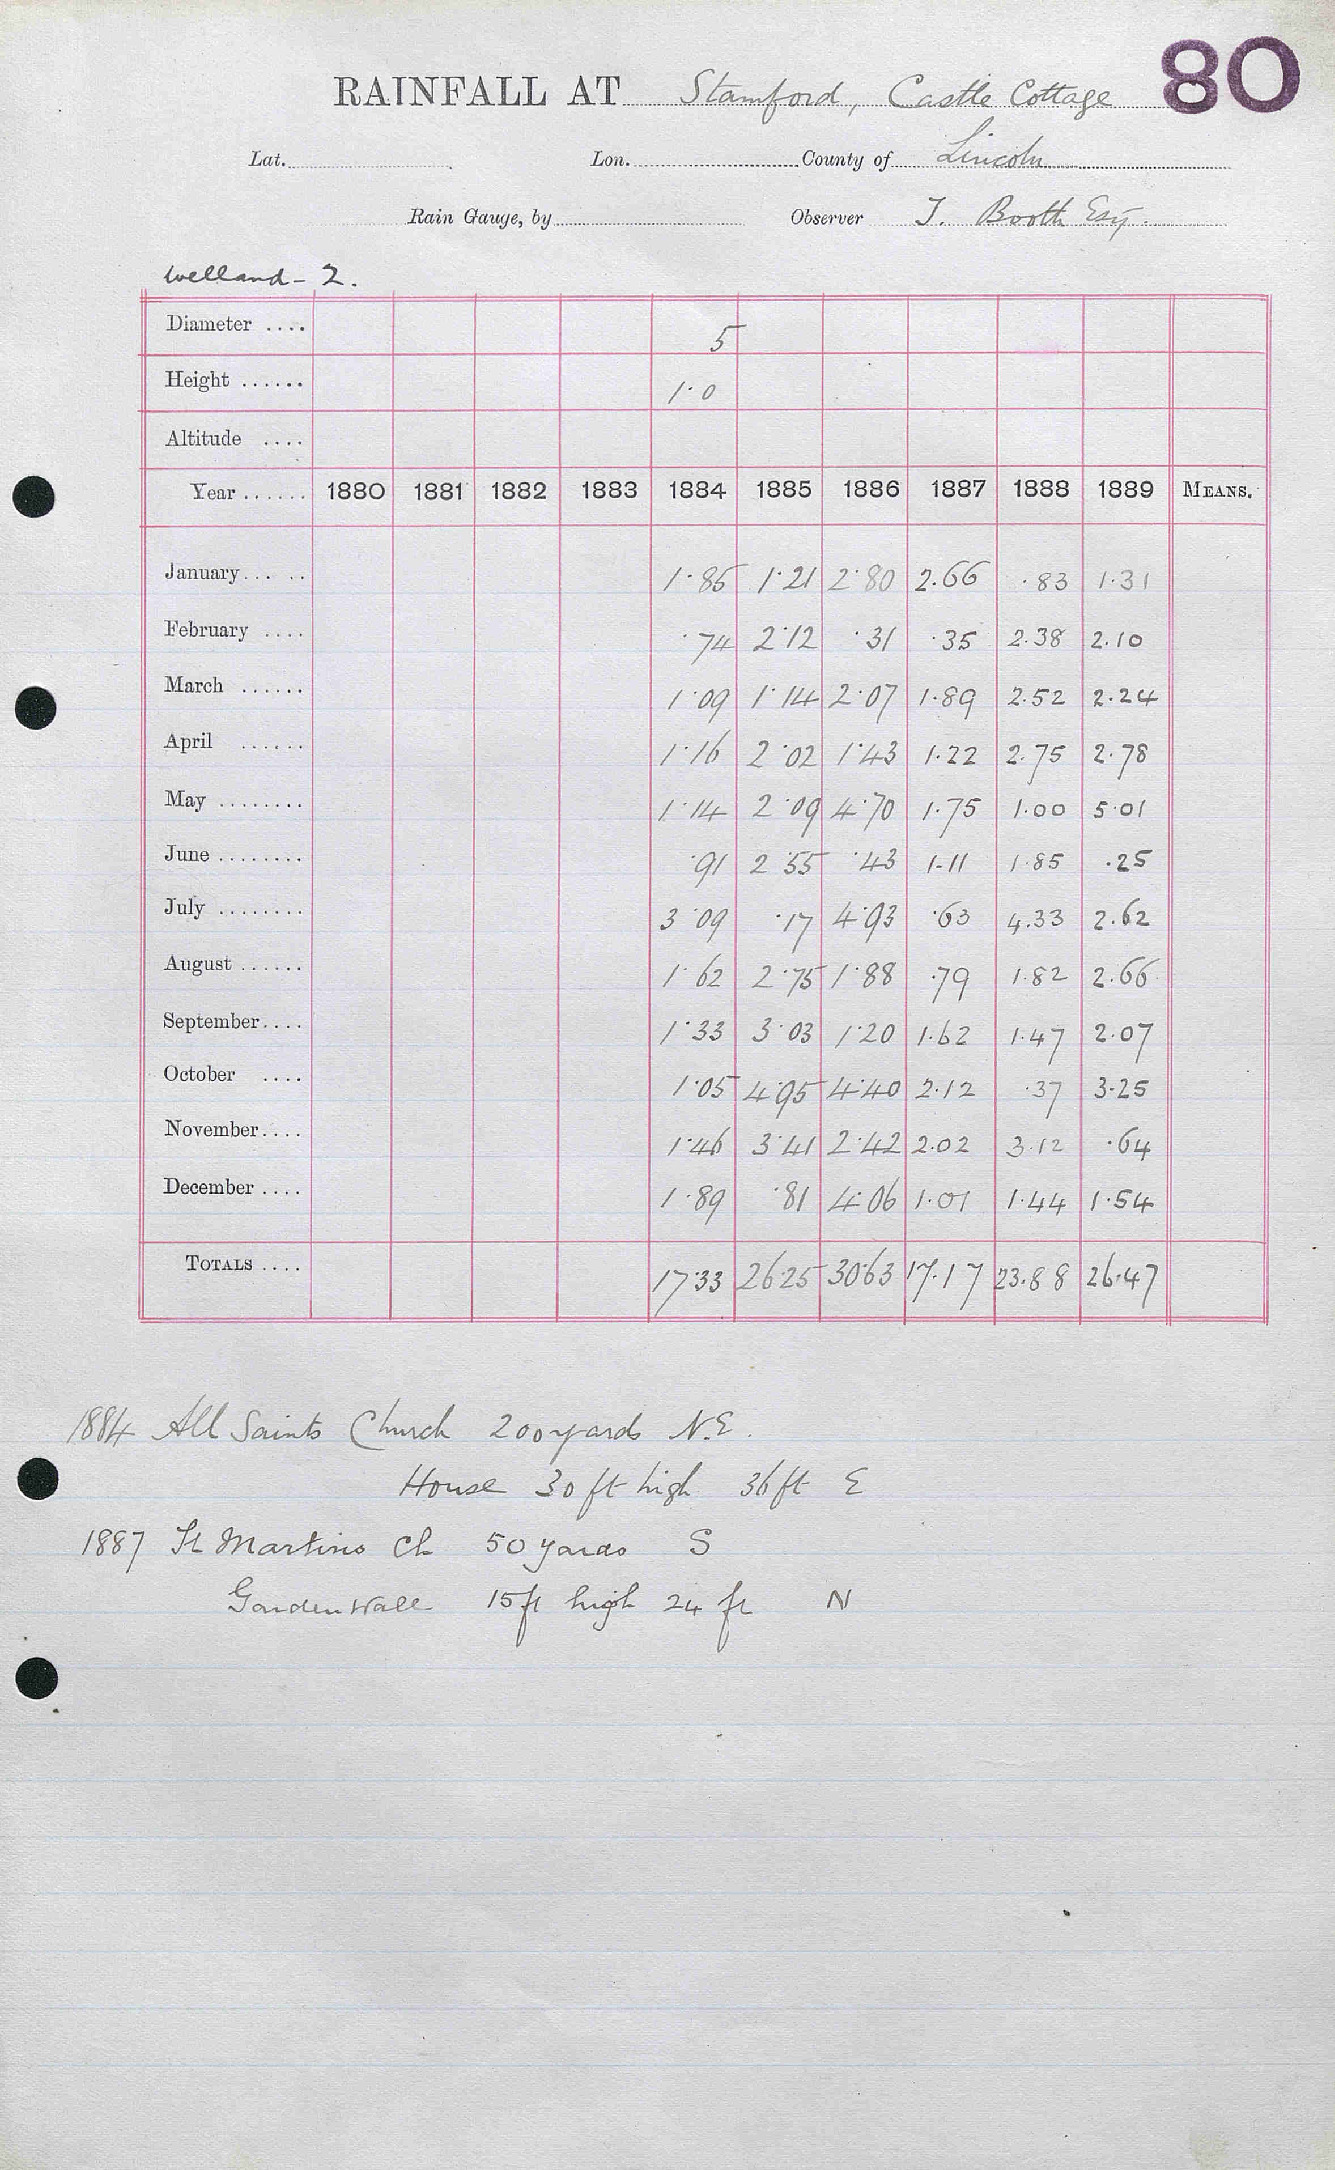 80
RAINFALL AT Stamford, Castle Cottage
Lat. Lon. County of Lincoln
Rain Gauge, by Observer J. Booth Esq.
Welland - 2.
Diameter .... 5
Height ...... 1·0
Altitude ....
Year ...... 1880 1881 1882 1883 1884 1885 1886 1887 1888 1889 MEANS.
January... .. 1·85 1·21 2·80 2.66 ·83 1·31
February .... ·74 2·12 ·31 ·35 2.38 2.10
March ...... 1·09 1·14 2·07 1·89 2.52 2.24
April ...... 1·16 2·02 1·43 1·22 2.75 2·78
May ........ 1·14 2·09 4·70 1·75 1.00 5·01
June ........ ·91 2·55 ·43 1·11 1·85 ·25
July ........ 3·09 ·17 4·93 ·63 4.33 2.62
August ...... 1·62 2·75 1·88 ·79 1.82 2.66
September.... 1·33 3·03 1·20 1.62 1·47 2·07
October .... 1·05 4·95 4·40 2·12 ·37 3·25
November.... 1·46 3·41 2·42 2.02 3·12 ·64
December .... 1·89 ·81 4·06 1·01 1·44 1·54
TOTALS .... 17·33 26·25 30·63 17·17 23.88 26·47
1884 All Saints Church 200 yards N.E.
House 30 ft high 36 ft E
1887 St Martins Ch 50 yards S
Garden Wall 15 ft high 24 ft N